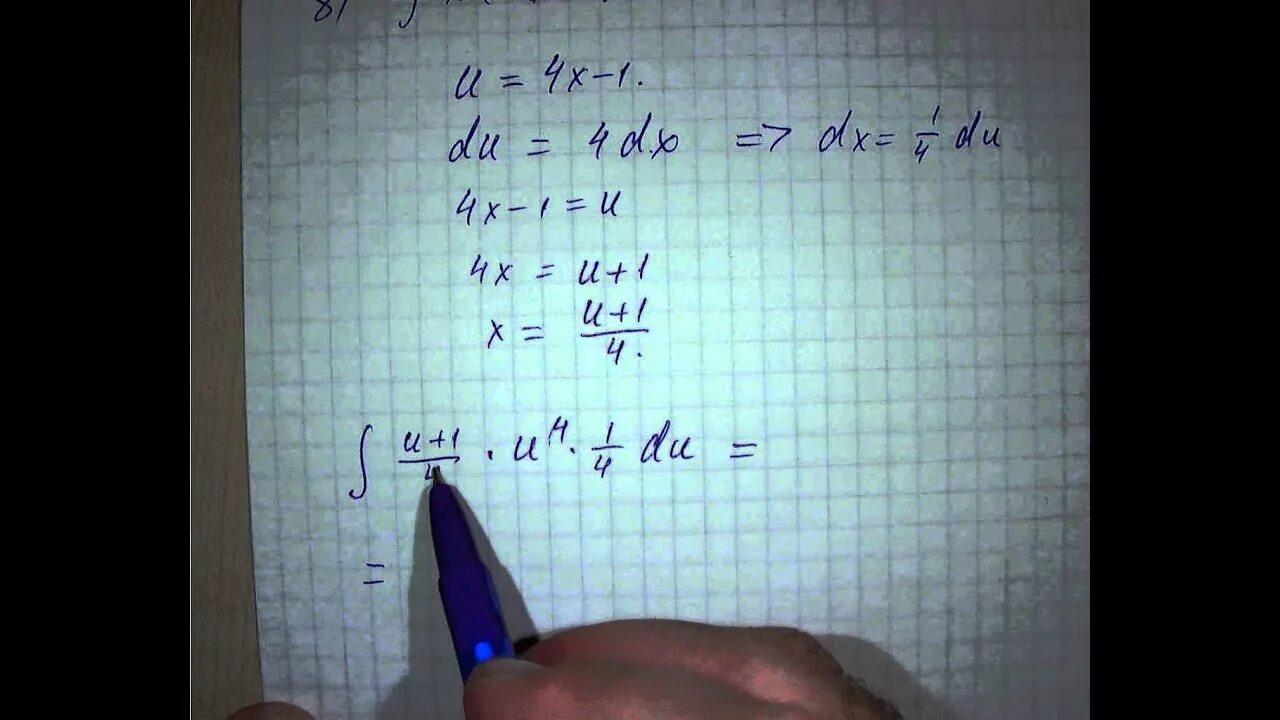 8)
u = 4x-1.
du = 4dx => dx = 1/4 du
4x-1 = u
4x = u+1
x = (u+1)/4.
∫ (u+1)/4 · u⁴ · 1/4 du =
=